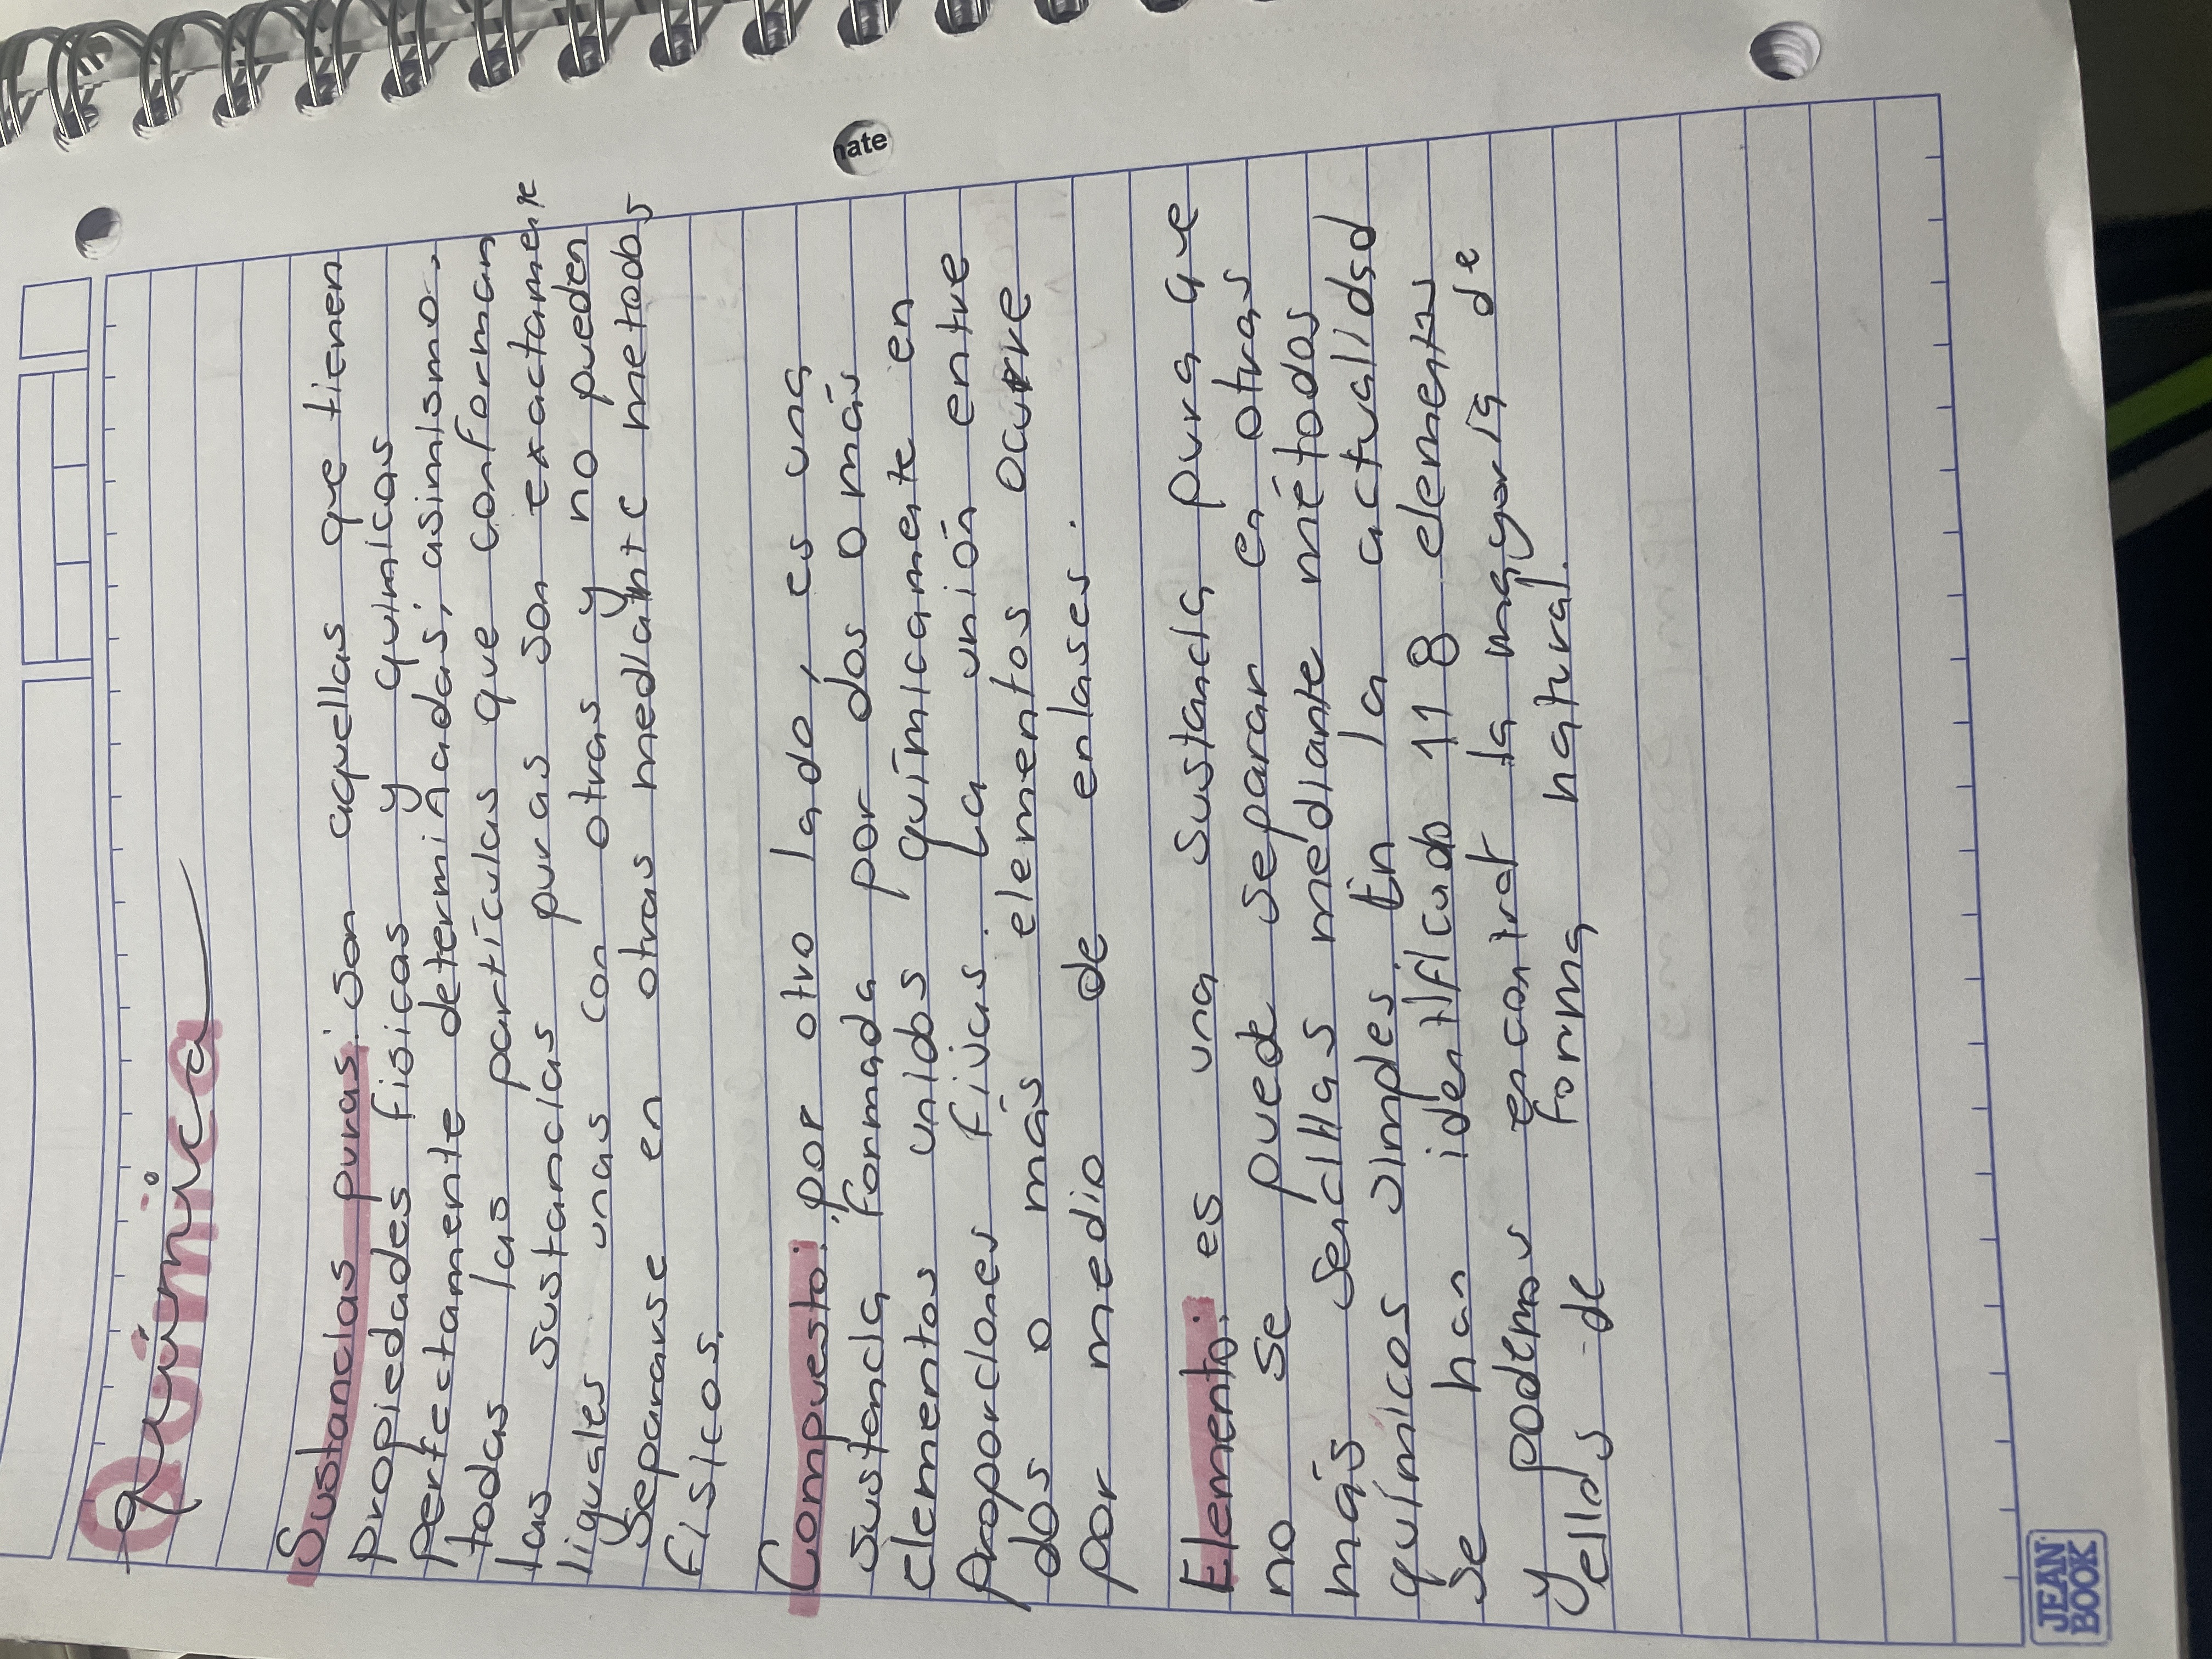 Química
Sustancias puras: son aquellas que tienen
propiedades físicas y químicas
perfectamente determinadas; asimismo,
todas las partículas que conforman
las sustancias puras son exactamente
iguales unas con otras y no pueden
separarse en otras mediante metodos
físicos.
Compuesto: por otro lado, es una
sustencia formada por dos o más
elementos unidos químicamente en
proporciones fivas. La unión entre
dos o más elementos ocurre
por medio de enlases.
Elemento: es una sustancia pura que
no se puede separar en otras
más sencillas mediante métodos
químicos simples. En la actualidad
se han identificado 118 elementos
y podemos encontrar la mayoría de
ellos de forma natural.
nate
JEAN
BOOK